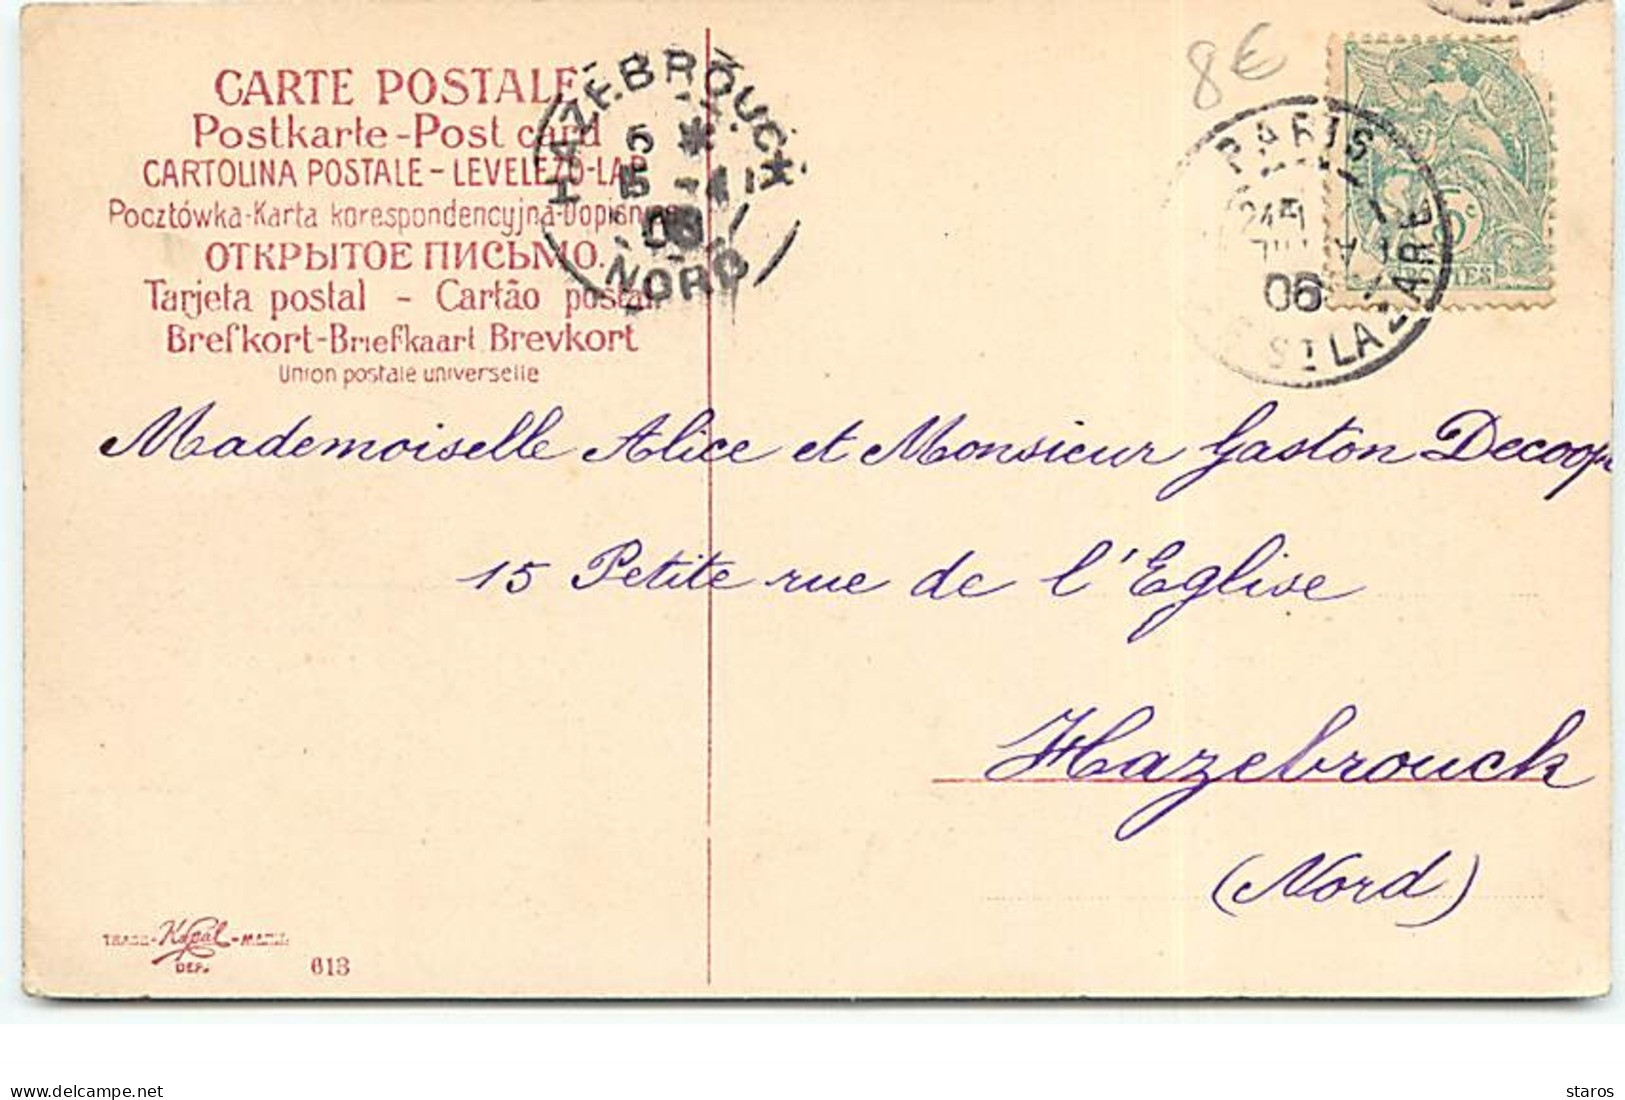 8€
CARTE POSTALE
Postkarte-Post card
CARTOLINA POSTALE-LEVELEZŐ-LAP
Pocztówka-Karta korespondencyjna-Dopisnice
ОТКРЫТОЕ ПИСЬМО.
Tarjeta postal - Cartão postal
Brefkort-Briefkaart Brevkort
Union postale universelle
HAZEBROUCK
NORD
PARIS
06
ST LAZARE
5c
POSTES
Mademoiselle Alice et Monsieur Gaston
15 Petite rue de l'Eglise
Hazebrouck
(Nord)
TRADE-Kopal-MARK
DEP.
613
delcampe.net
staros